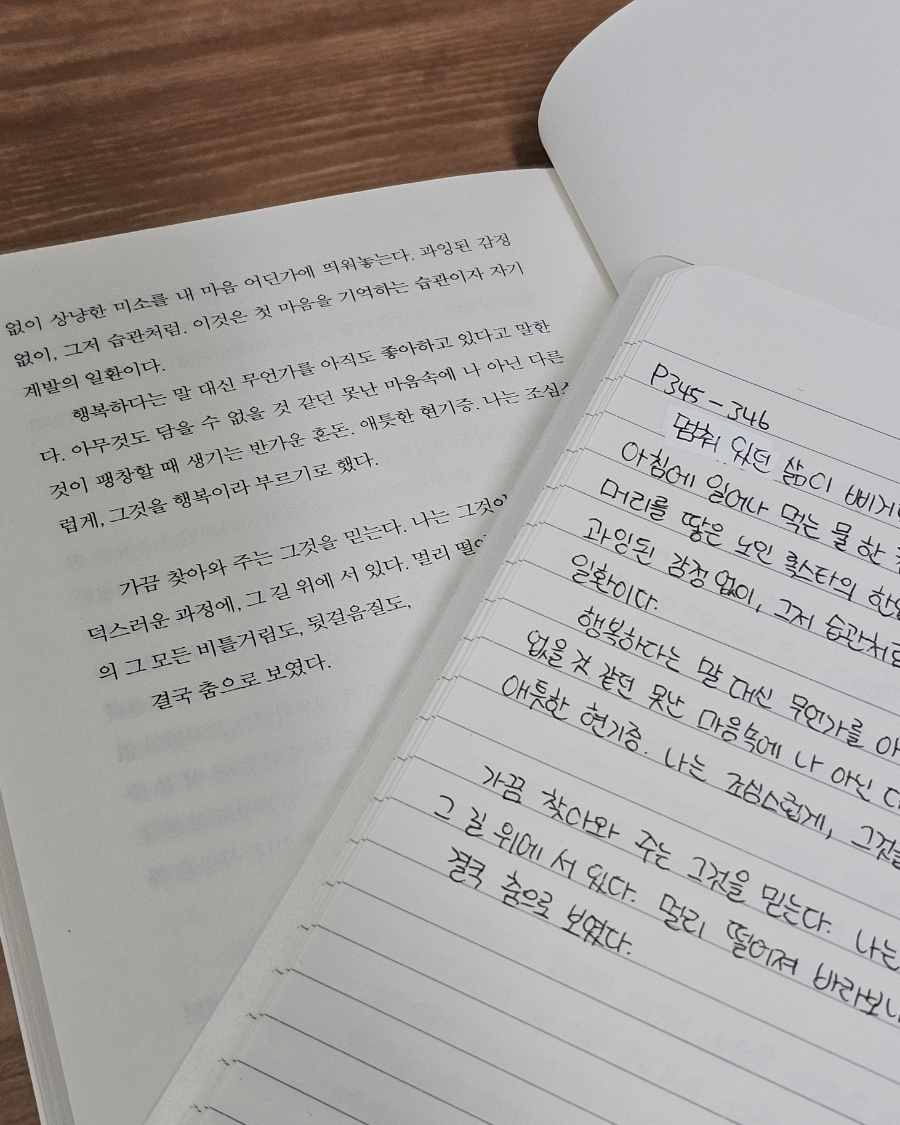 없이 상냥한 미소를 내 마음 어딘가에 띄워놓는다. 과잉된 감정
없이, 그저 습관처럼. 이것은 첫 마음을 기억하는 습관이자 자기
계발의 일환이다.
행복하다는 말 대신 무언가를 아직도 좋아하고 있다고 말한
다. 아무것도 담을 수 없을 것 같던 못난 마음속에 나 아닌 다른
것이 팽창할 때 생기는 반가운 혼돈. 애틋한 현기증. 나는 조심스
럽게, 그것을 행복이라 부르기로 했다.
가끔 찾아와 주는 그것을 믿는다. 나는 그것이
덕스러운 과정에, 그 길 위에 서 있다. 멀리
의 그 모든 비틀거림도, 뒷걸음질도,
결국 춤으로 보였다.
P345 - 346
멈춰 있던 삶이
아침에 일어나 먹는 물 한
머리를 땋은 노인 록스타의
과잉된 감정 없이, 그저 습관처럼
일환이다.
행복하다는 말 대신 무언가를
없을 것 같던 못난 마음속에 나 아닌
애틋한 현기증. 나는 조심스럽게, 그것을
가끔 찾아와 주는 그것을 믿는다. 나는
그 길 위에 서 있다. 멀리 떨어져 바라보니
결국 춤으로 보였다.